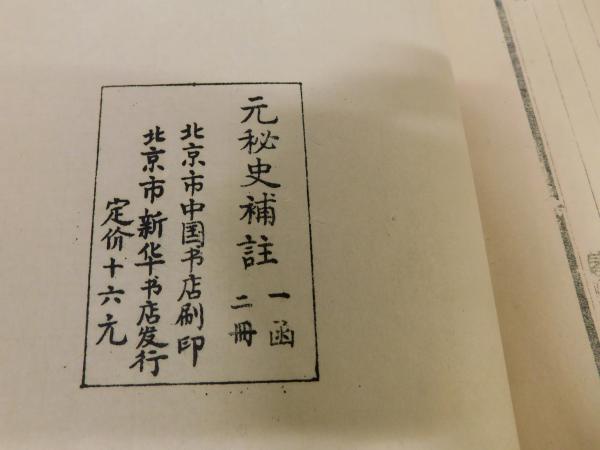 元秘史補註 一函
二冊
北京市中国书店刷印
北京市新华书店发行
定价十六元